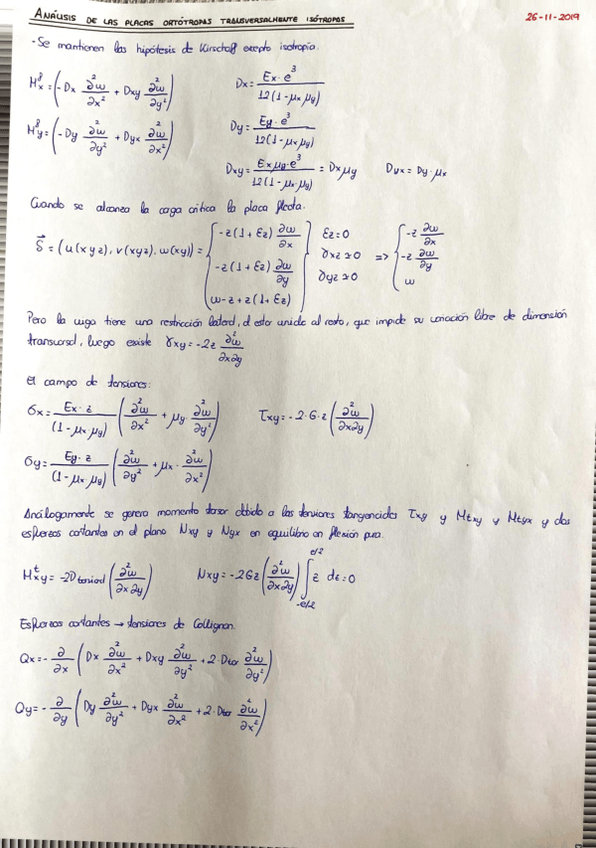 ANÁLISIS DE LAS PLACAS ORTÓTROPAS TRANSVERSALMENTE ISÓTROPAS 26-11-2019
- Se mantienen las hipótesis de Kirschoff excepto isotropía.
M^f_x = (-Dx ∂²w/∂x² + Dxy ∂²w/∂y²) Dx = Ex·e³/12(1-μx μy)
M^f_y = (-Dy ∂²w/∂y² + Dyx ∂²w/∂x²) Dy = Ey·e³/12(1-μx μy)
Dxy = Ex μy·e³/12(1-μx·μy) = Dx μy Dyx = Dy·μx
Cuando se alcanza la carga crítica la placa flecta.
δ⃗ = (u(xyz), v(xyz), w(xy)) = { -z(1+εz) ∂w/∂x ; -z(1+εz) ∂w/∂y ; w-z+z(1+εz) } εz=0 γxz≃0 γyz≃0 => { -z ∂w/∂x ; -z ∂w/∂y ; w
Pero la viga tiene una restricción lateral, al estar unida al resto, que impide su variación libre de dimensión
transversal, luego existe γxy = -2z ∂²w/∂x∂y
El campo de tensiones:
σx = Ex·z/(1-μx μy) (∂²w/∂x² + μy·∂²w/∂y²) τxy = -2·G·z (∂²w/∂x∂y)
σy = Ey·z/(1-μx μy) (∂²w/∂y² + μx·∂²w/∂x²)
Análogamente se genera momento torsor debido a las tensiones tangenciales τxy y Mtxy y Mtyx y dos
esfuerzos cortantes en el plano Nxy y Nyx en equilibrio en flexión pura.
M^t_xy = -2D torsional (∂²w/∂x∂y) Nxy = -2Gz (∂²w/∂x∂y) ∫_{-e/2}^{e/2} z de = 0
Esfuerzos cortantes → tensiones de Collignon.
Qx = -∂/∂x (Dx ∂²w/∂x² + Dxy ∂²w/∂y² + 2·Dtor ∂²w/∂y²)
Qy = -∂/∂y (Dy ∂²w/∂y² + Dyx ∂²w/∂x² + 2·Dtor ∂²w/∂x²)